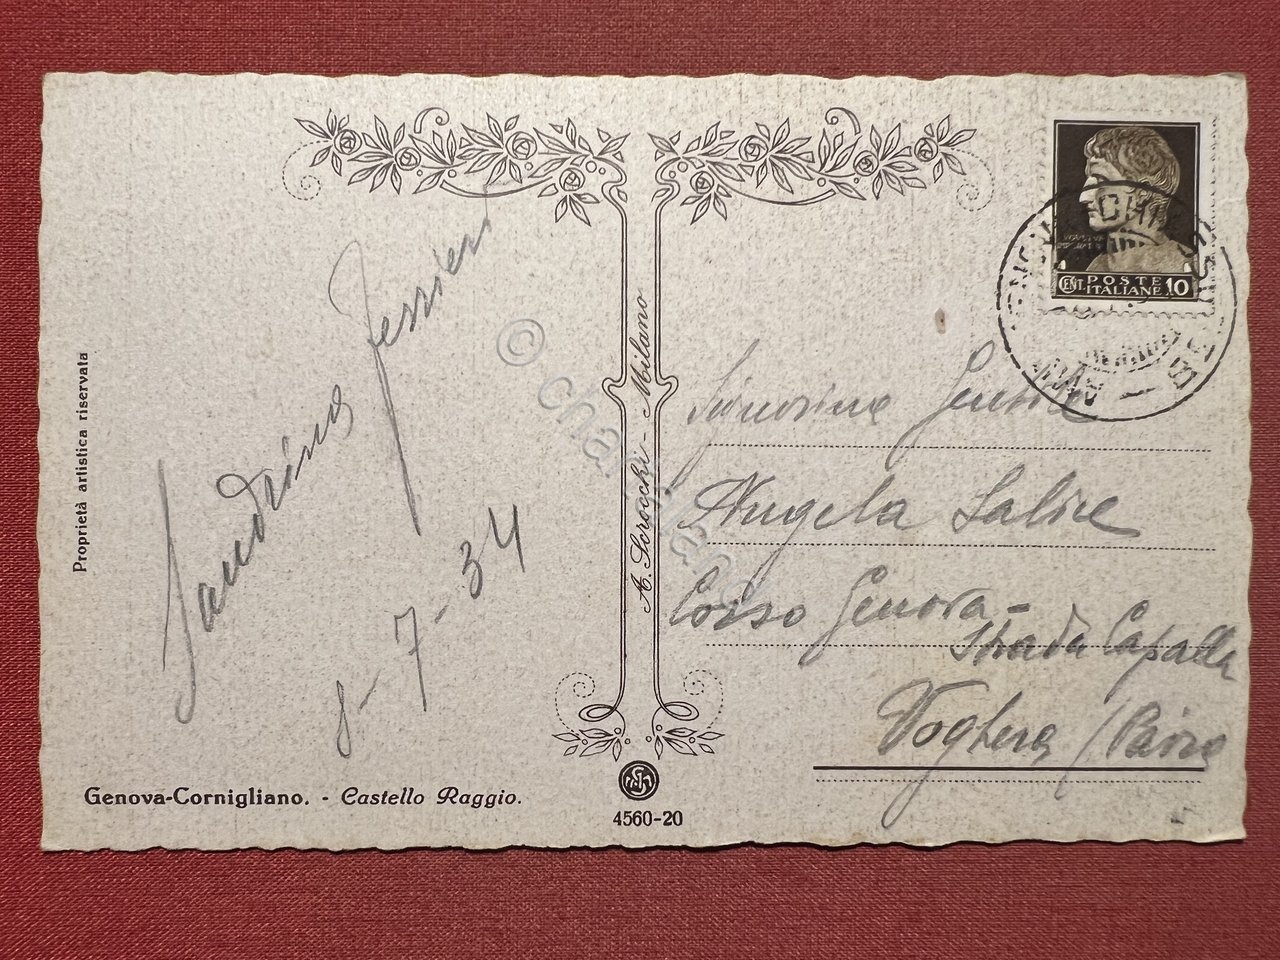 Proprietà artistica riservata
Sandrina
8-7-34
Genova-Cornigliano. - Castello Raggio.
A. Scrocchi - Milano
4560-20
CENT. POSTE ITALIANE 10
Signorina
Angela Salice
Corso Genova -
Strada Capalla
Voghera (Pavia
© charliand